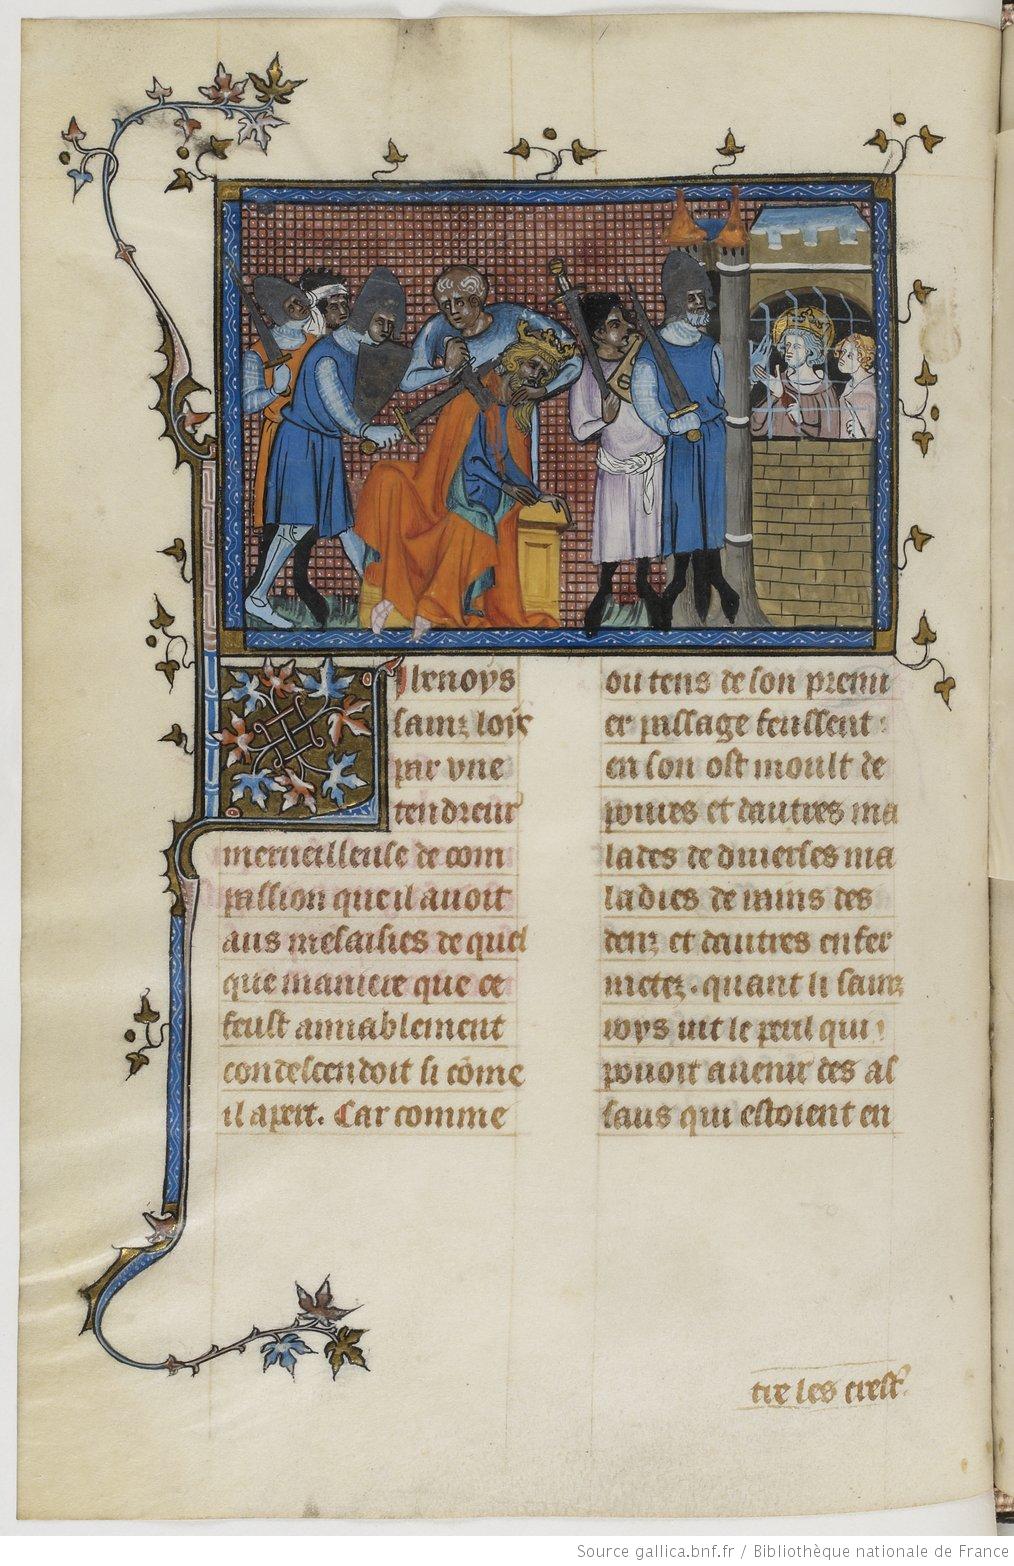 Ilenoys
sainz loÿs
par vne
tendreur
merueilleuse de com
passion que il auoit
aus mesaisies de quel
que maniere que ce
feust amiablement
condescendoit si cõme
il apert. Car comme
ou tens de son premi
er passage feussent
en son ost moult de
poures et dautres ma
lades de diuerses ma
ladies de rains des
denz et dautres enfer
metez. quant li sainz
loys uit le peril qui
pouoit auenir des as
saus qui estoient en
tre les crest
Source gallica.bnf.fr / Bibliothèque nationale de France